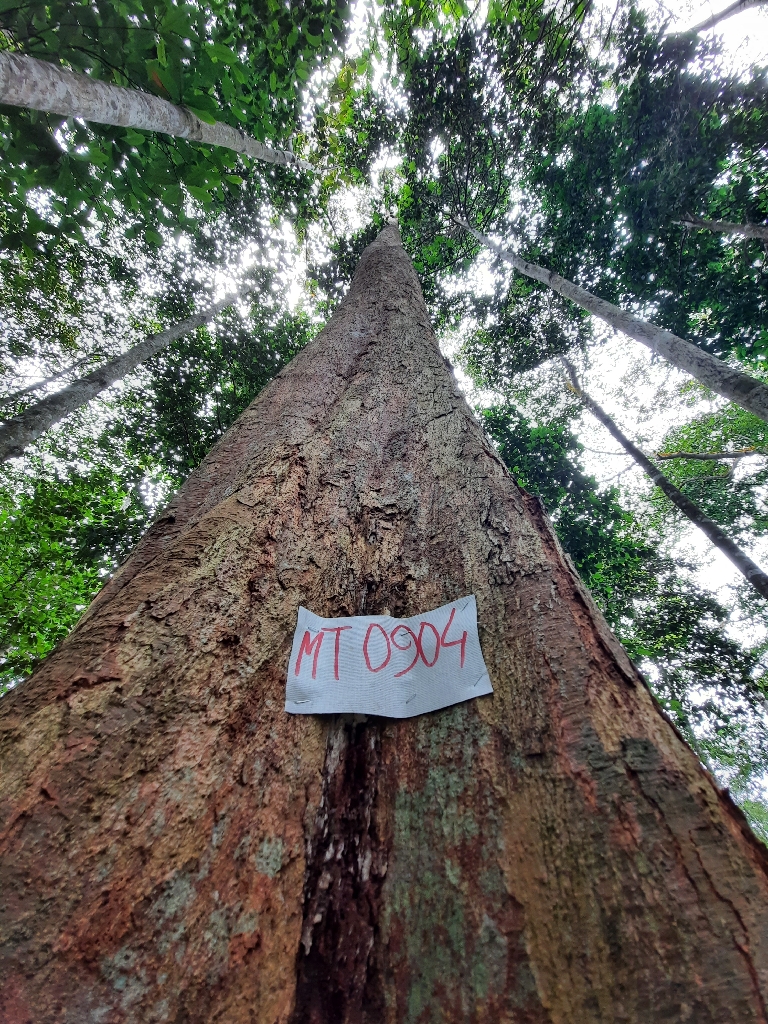 MT 0904